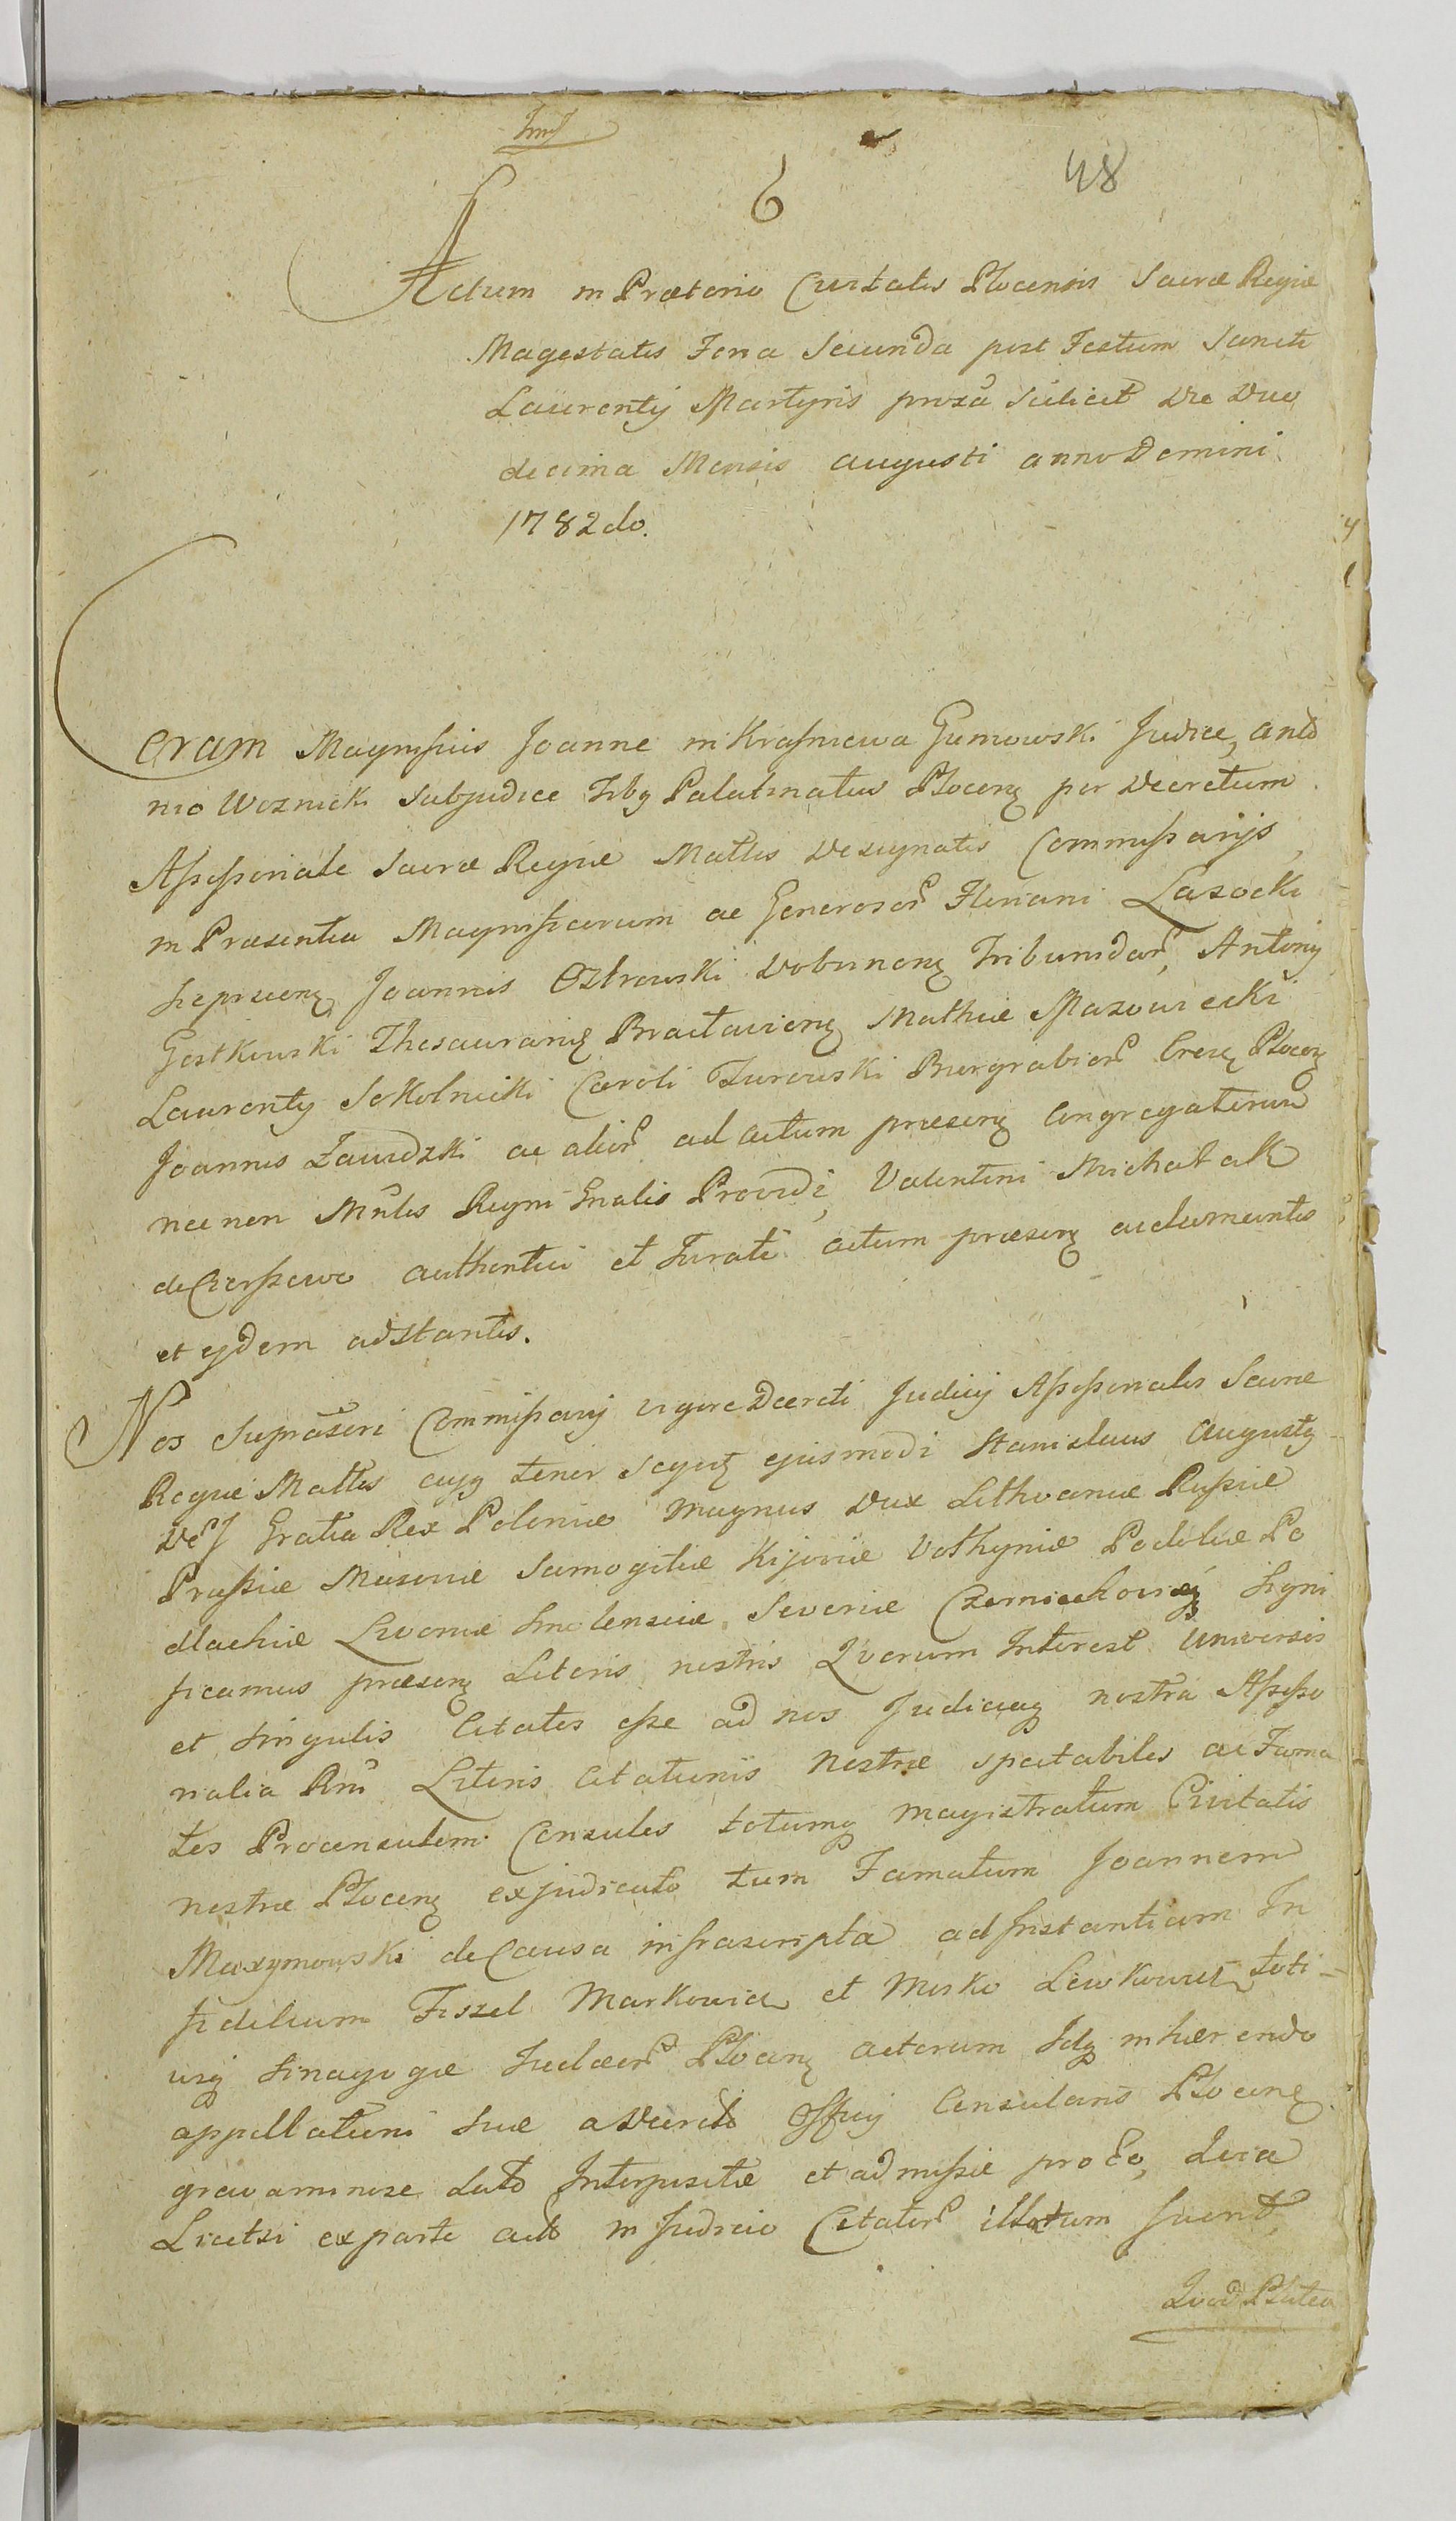 6
48
Actum in Prætorio Civitatis Plocensis Sacræ Regiæ
Magestatis Feria Secunda post Festum Sancti
Laurentij Martyris proxa scilicet Die Duo
decima Mensis augusti anno Domini
1782do.
Coram Magnificis Joanne in Krasniewa Gumowski Judice, anto
nio Woznicki Subjudice Palatinatus Plocens per Decretum
Assessoriale Sacræ Regiæ Mattis Designatis Commissarijs,
in Præsentia Magnificorum ac Generosor Floriani Lasocki
Joannis Ostrowski Dobrinens Tribunidar, Antonij
Gostkowski Thesaurarij Braclaviens Mathiæ Mazowiecki
Laurentij Sokolnicki Caroli Turowski Burgrabior Plocens
Joannis Zawidzki ac alior ad actum præsens Congregatorum
nec non Mnlis Regni Gnalis Providi, Valentini Michalak
de authentici et Jurati actum præsens
et ejdem adstantis.
Nos Suprascri Commissarij vigore Decreti Judicij Assessorialis Sacræ
Regiæ Mattis cujg tenor seqvt ejusmodi Stanislaus Augustg
Dei Gratia Rex Poloniæ Magnus Dux Lithvaniæ Russiæ
Prussiæ Masoviæ Samogitiæ Kijoviæ Volhyniæ Podoliæ Po
dlachiæ Livoniæ Smolensciæ Severiæ Czerniechoviæq Signi
ficamus præsens Literis nostris Qvorum Interest Universis
et Singulis Citatos esse ad nos Judiciaq nostra Assesso
rialia Literis Citationis Nostræ spectabiles ac Fama
tos Proconsulem Consules totumq Magistratum Civitatis
nostræ Plocens exjudicato tum Famatum Joannem
Maxymowski de Causa infrascripta ad Instantiam In
fidelium Fiszel Markowicz et Mosko Lewkowicz toti-
usq Sinagogæ Judæor Plocens actorum Idq inhærendo
appellationi suæ a Decreto Offcij Consularis Plocens
gravaminose lato Interpositæ et admissæ pro Eo, Qvia
Licetsi exparte acto in Judicio Citator illatum fuerit,
Qvod Platea